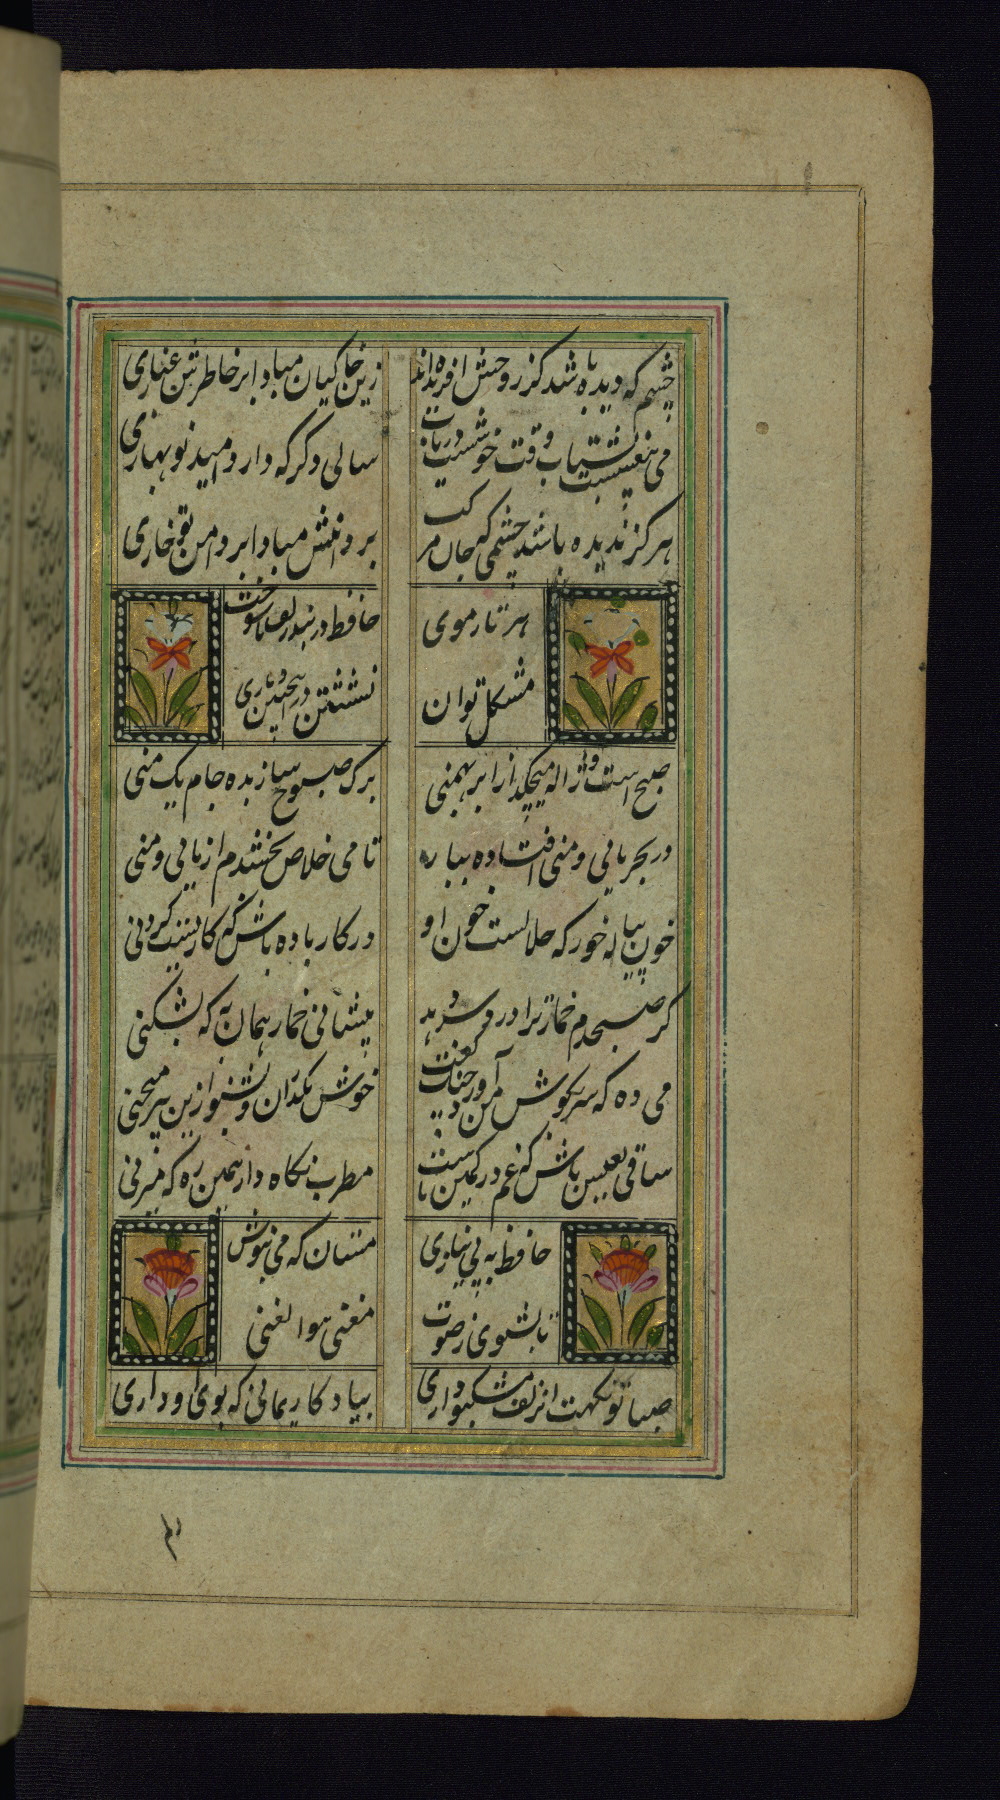 چشم که دیده باشد کز روحش افریده‌اند زین خاکیان مبادا بر خاطرش غباری
می بیغشست بشتاب وقت خوشست دریاب سالی دگر که دارد امید نوبهاری
هرگز ندیده باشد چشمی کجان مرکب بر دامنش مبادا بر دامن تو خاری
هر تار موی حافظ در بند زلف شوخت
مشکل توان نشستن در اینچنین دیاری
صبح است و ژاله میچکد از ابر بهمنی برک صبوح ساز بده جام یک منی
در بحر مایی و منی افتاده بیار تا می خلاص بخشدم از مایی و منی
خون پیاله خور که حلالست خون او در کار باده باش که کاریست کردنی
کر صبحدم خمار ترا درد سر دهد پیشانی خمار همان به که بشکنی
می ده که سر بکوش من آورد چنک و گفت خوش بگذران و بشنو ازین پیر منحنی
ساقی بعیش باش که غم در کمین ماست مطرب نگاه دار همین ره که میزنی
حافظ به بی نیازی مستان که می بنوش
تا بشنوی ز صوت مغنی هوالغنی
صبا تو نکهت از زلف مشکبو داری بیادکار بمانی که بوی او داری